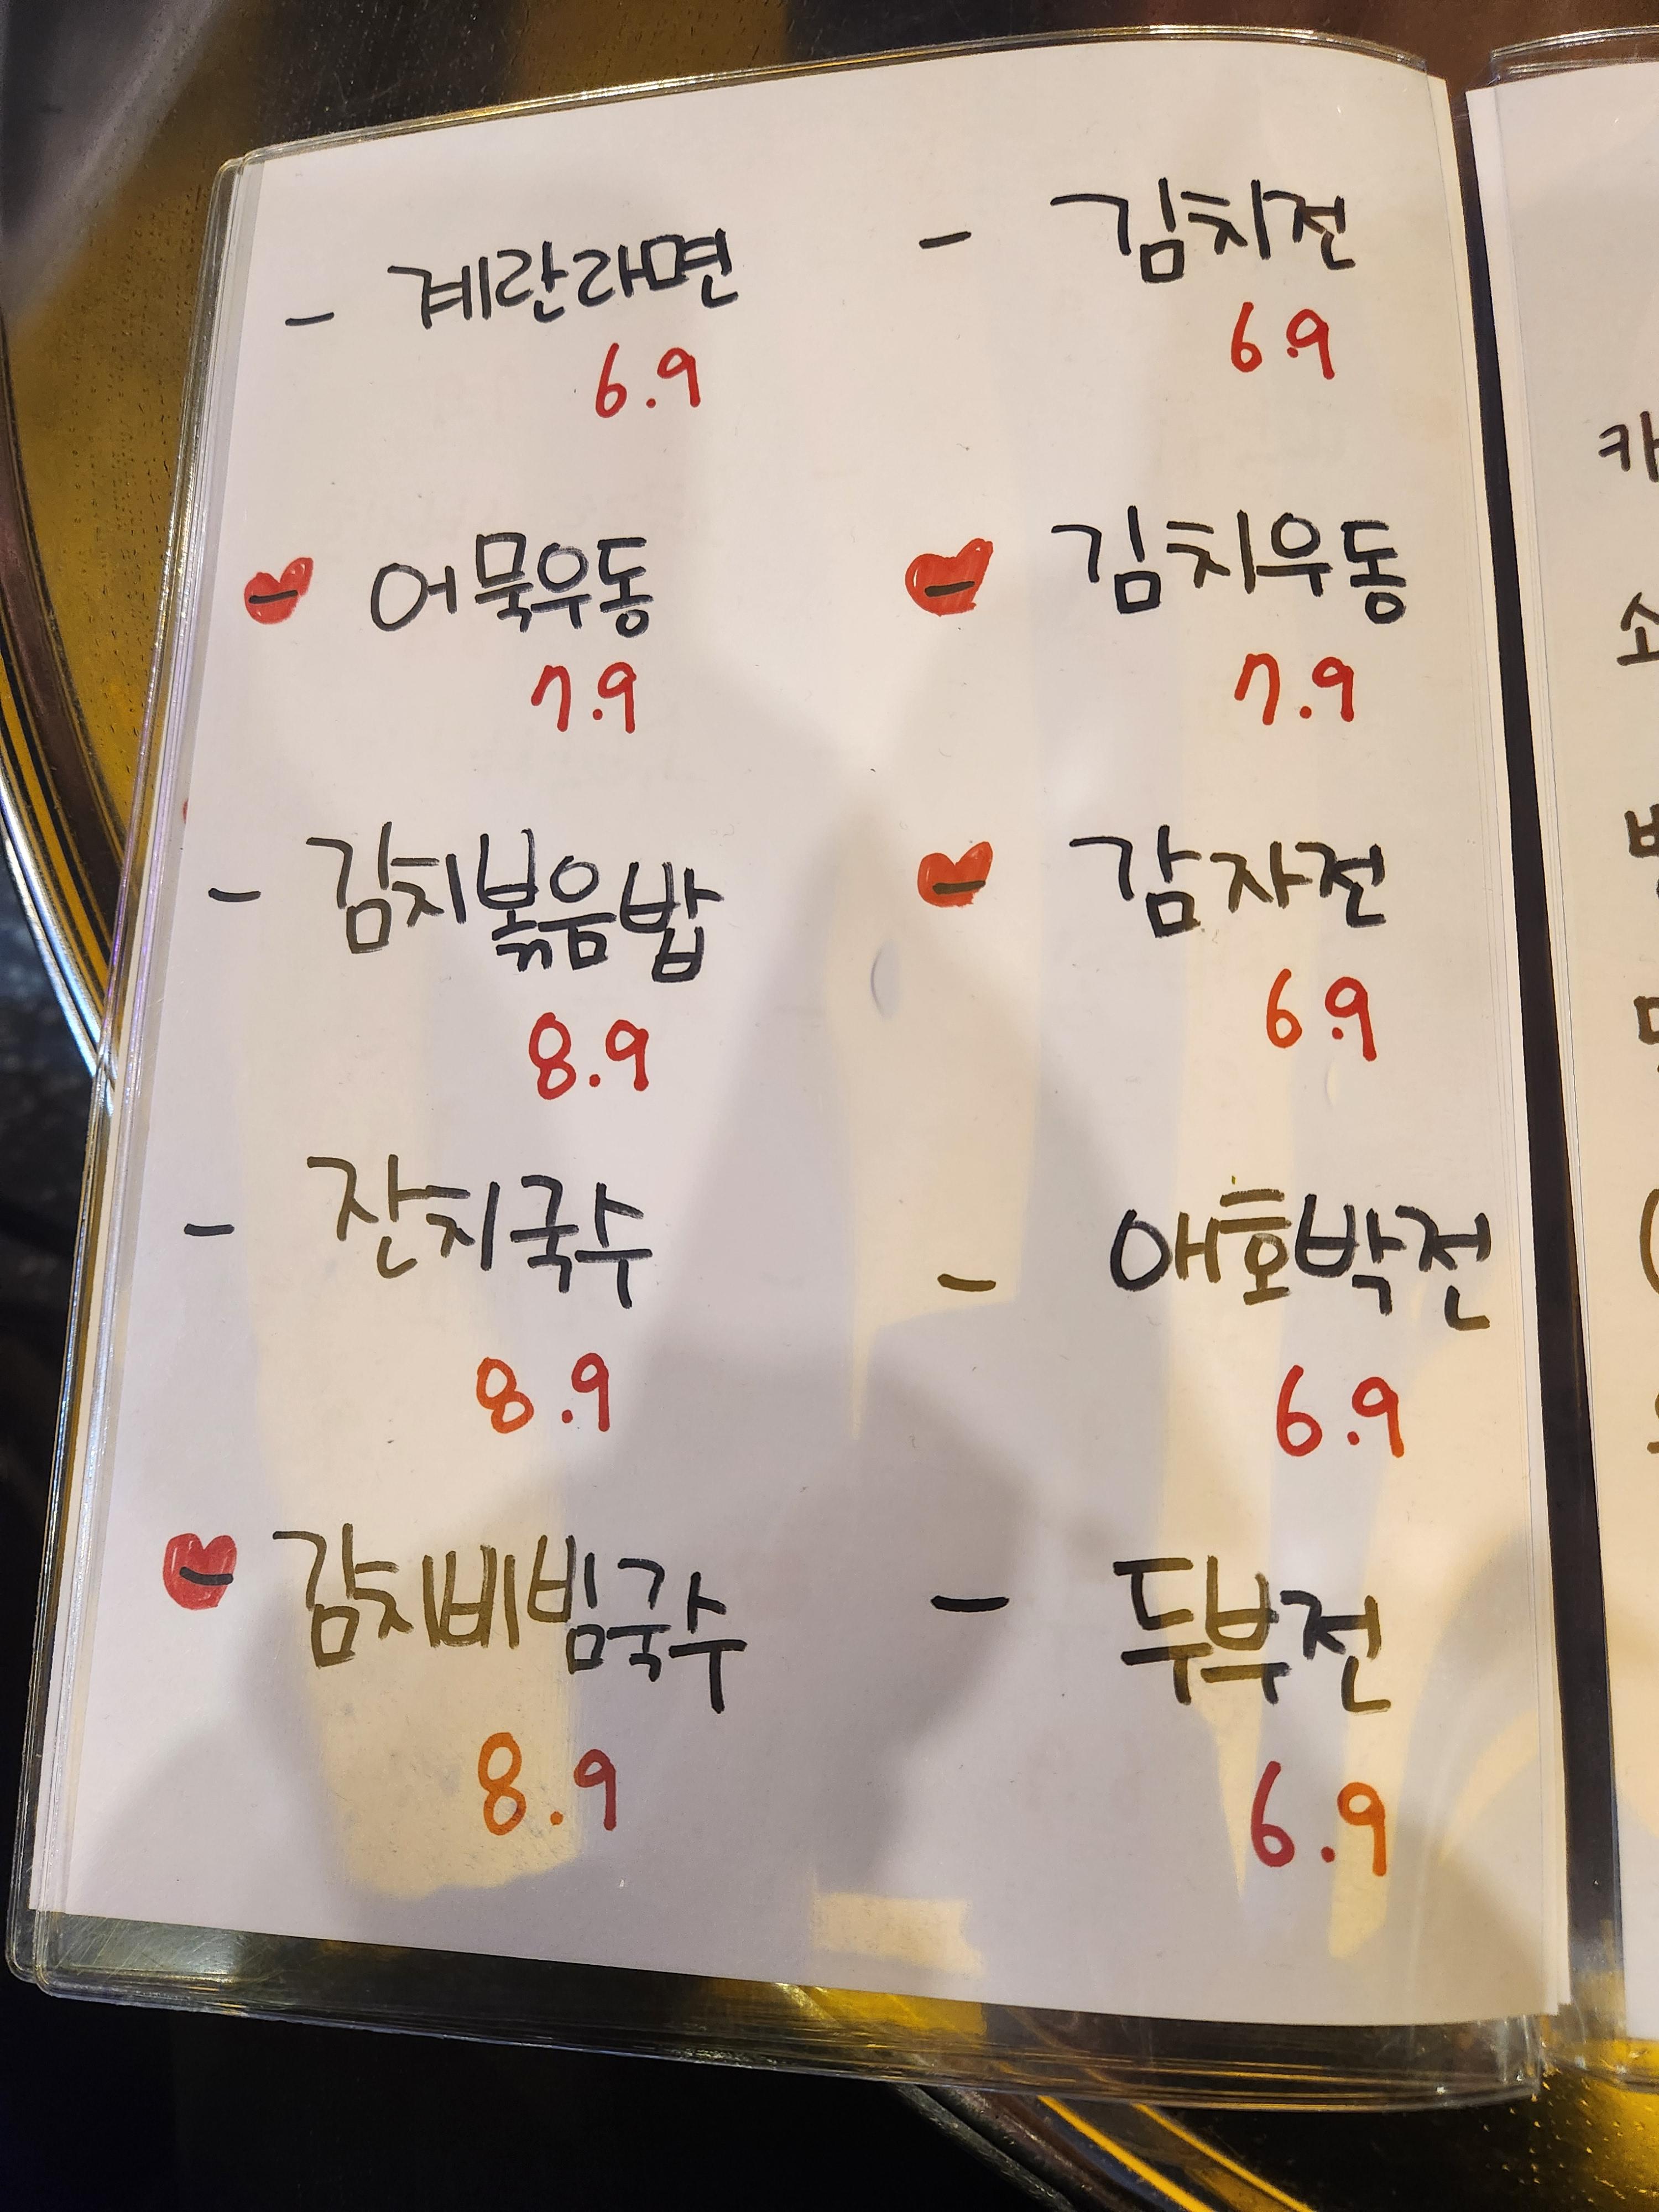 - 계란라면
6.9
- 어묵우동
7.9
- 김치볶음밥
8.9
- 잔치국수
8.9
- 김치비빔국수
8.9
- 김치전
6.9
- 김치우동
7.9
- 감자전
6.9
- 애호박전
6.9
- 두부전
6.9
카
소